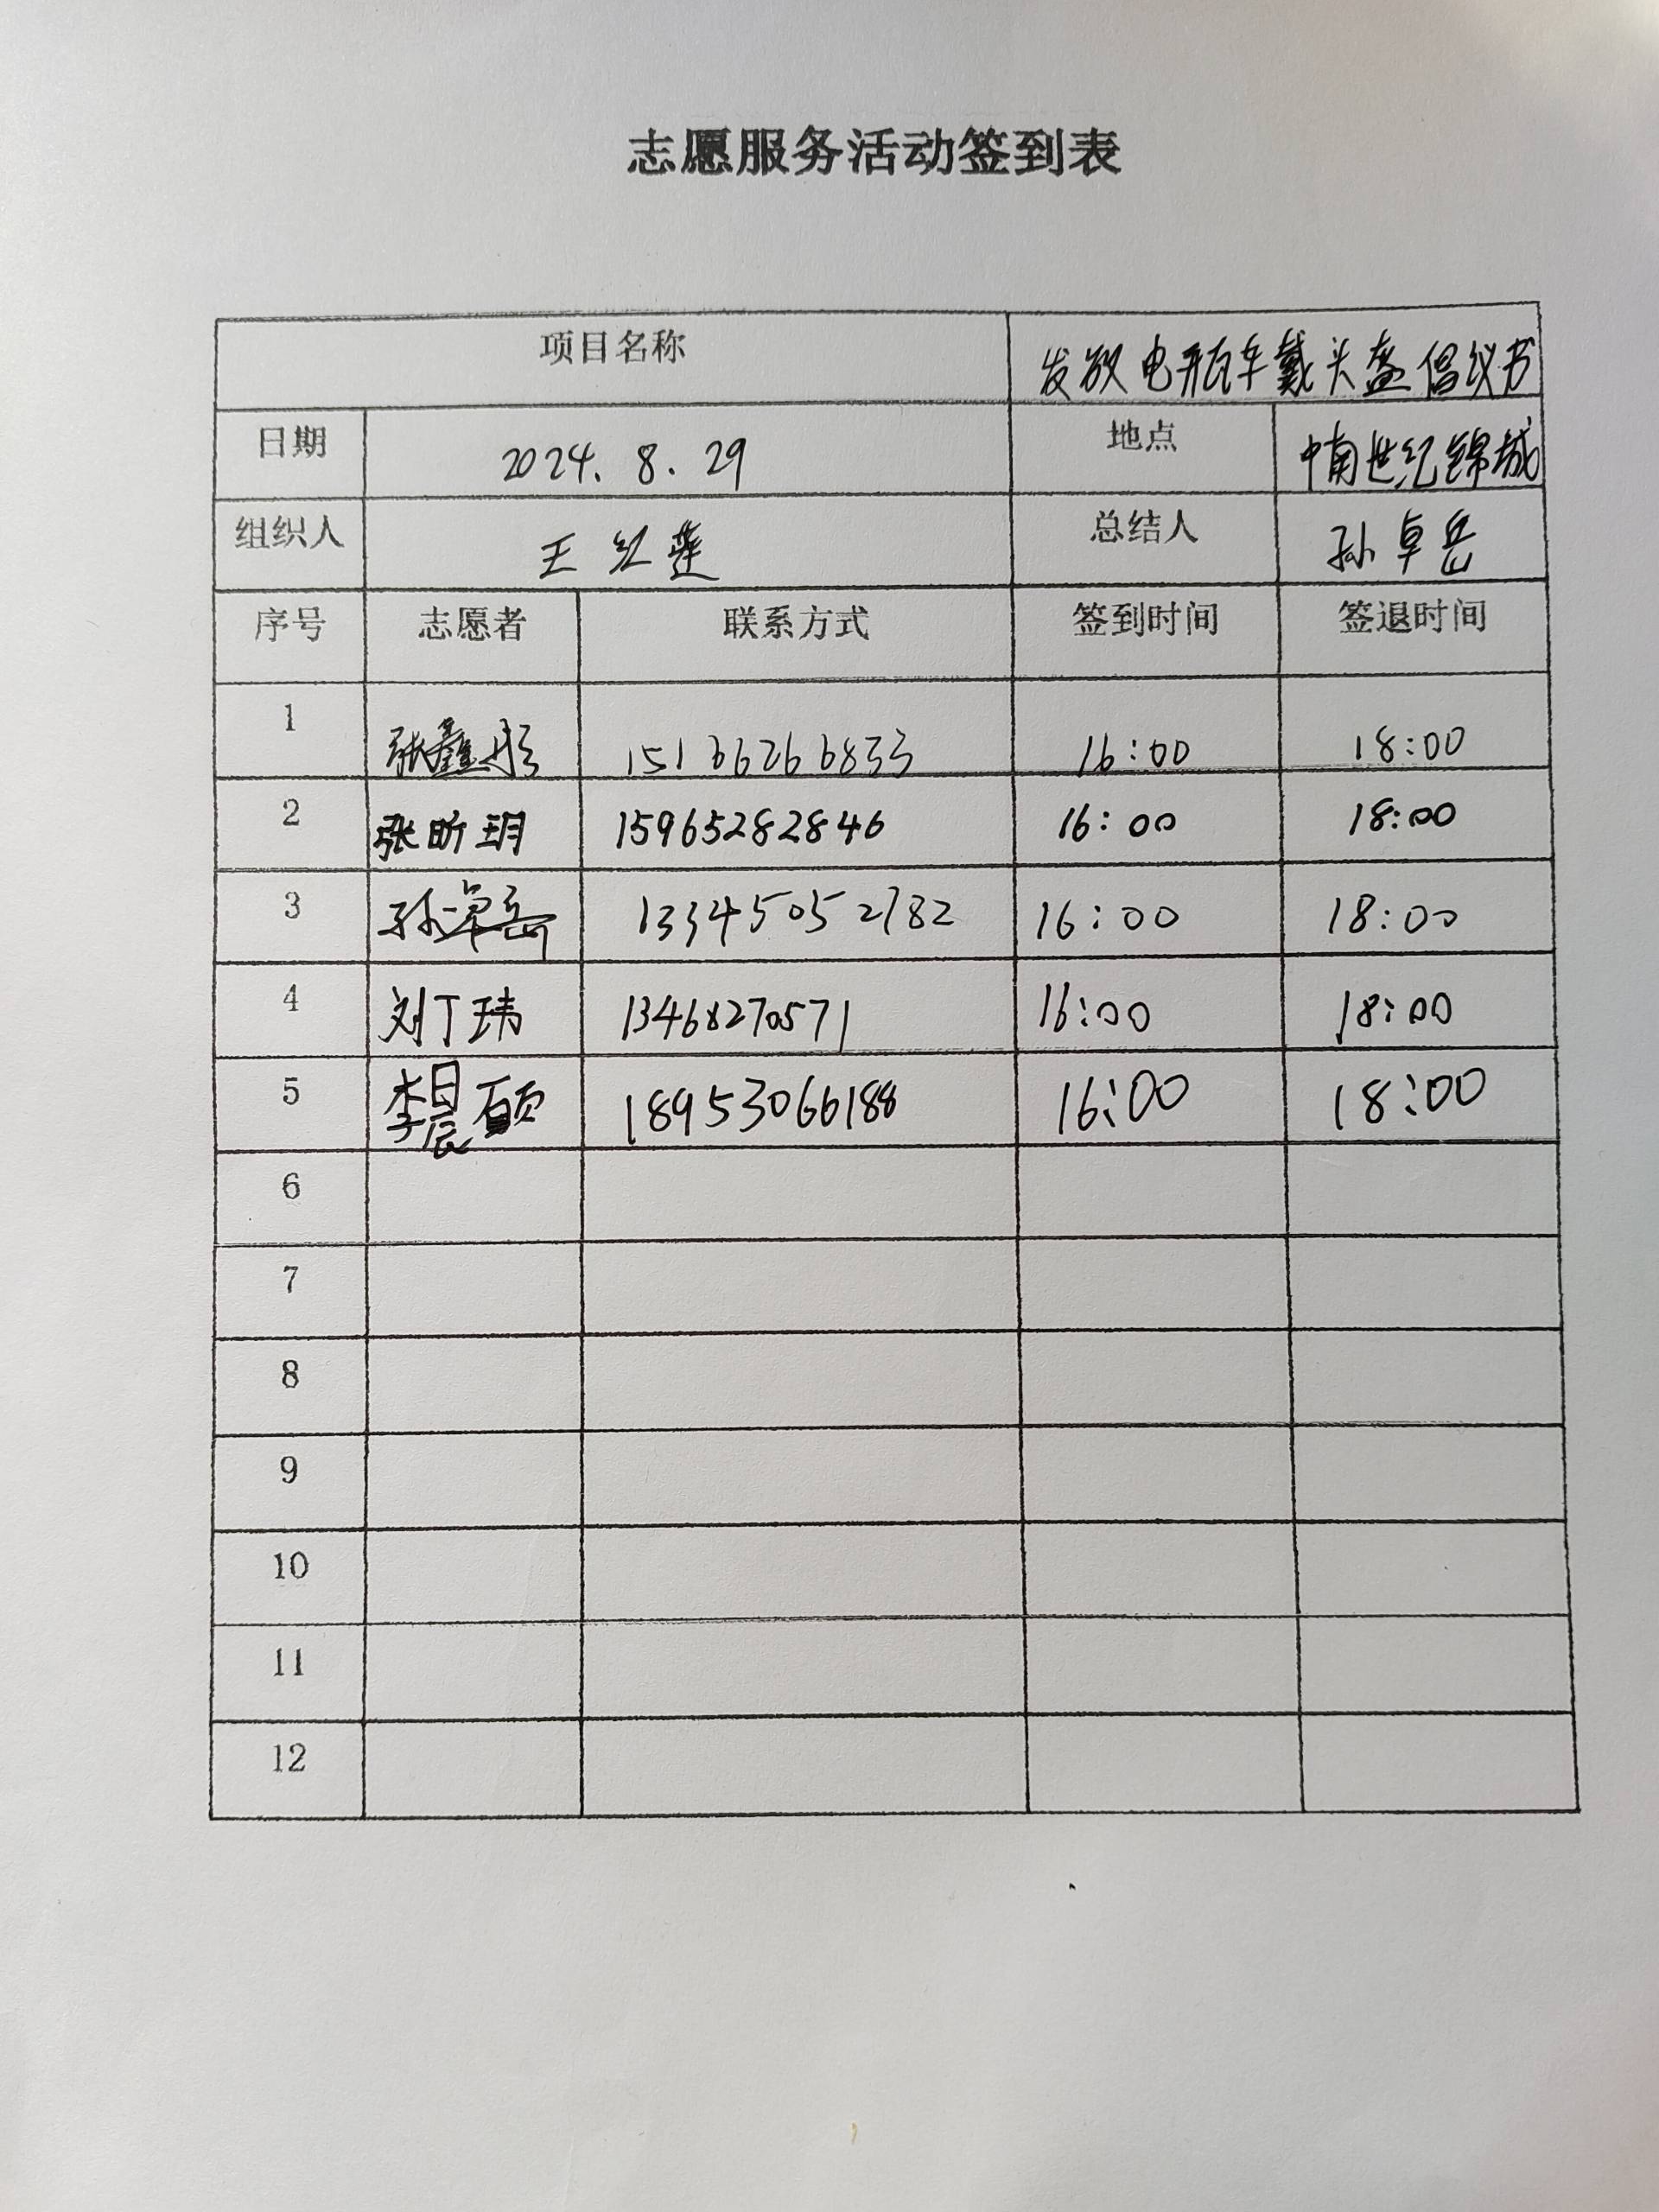 志愿服务活动签到表
项目名称 发放电瓶车戴头盔倡议书
日期 2024.8.29 地点 中南世纪锦城
组织人 王红莲 总结人 孙卓岳
序号 志愿者 联系方式 签到时间 签退时间
1 张鑫彤 15166266833 16:00 18:00
2 张昕玥 15965282846 16:00 18:00
3 孙卓岳 13345052782 16:00 18:00
4 刘丁玮 13468270571 16:00 18:00
5 李晨硕 18953066188 16:00 18:00
6
7
8
9
10
11
12